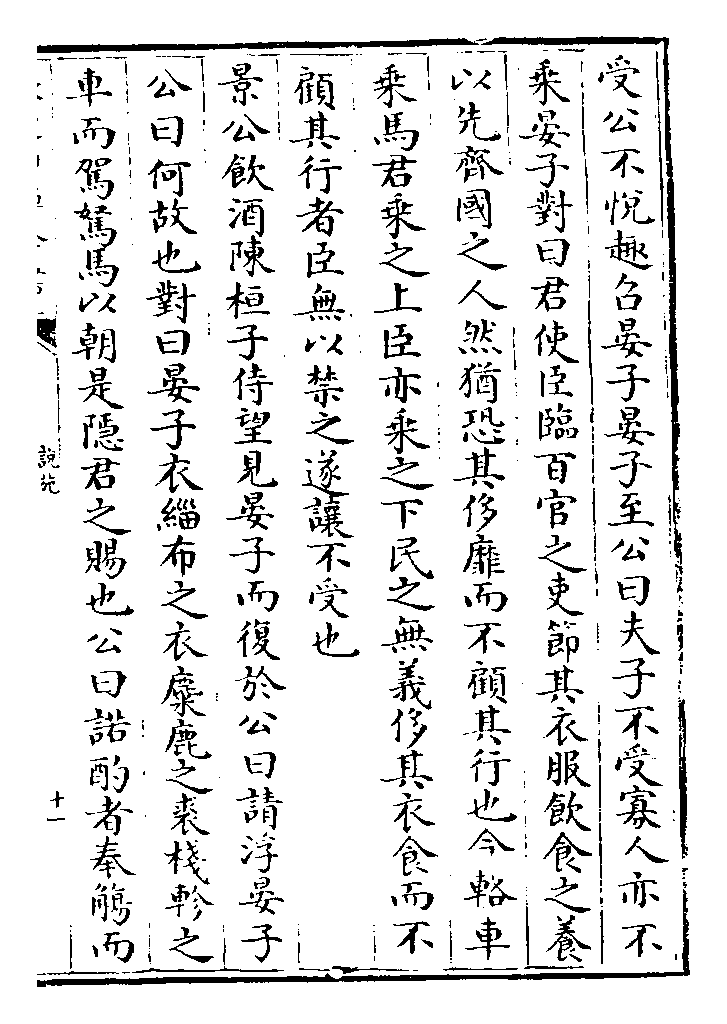 受公不悅趣召晏子晏子至公曰夫子不受寡人亦不
乘晏子對曰君使臣臨百官之吏節其衣服飲食之養
以先齊國之人然猶恐其侈靡而不顧其行也今輅車
乘馬君乘之上臣亦乘之下民之無義侈其衣食而不
顧其行者臣無以禁之遂讓不受也
景公飲酒陳桓子侍望見晏子而復於公曰請浮晏子
公曰何故也對曰晏子衣緇布之衣麋鹿之裘棧軫之
車而駕駑馬以朝是隱君之賜也公曰諾酌者奉觴而
說苑
十一